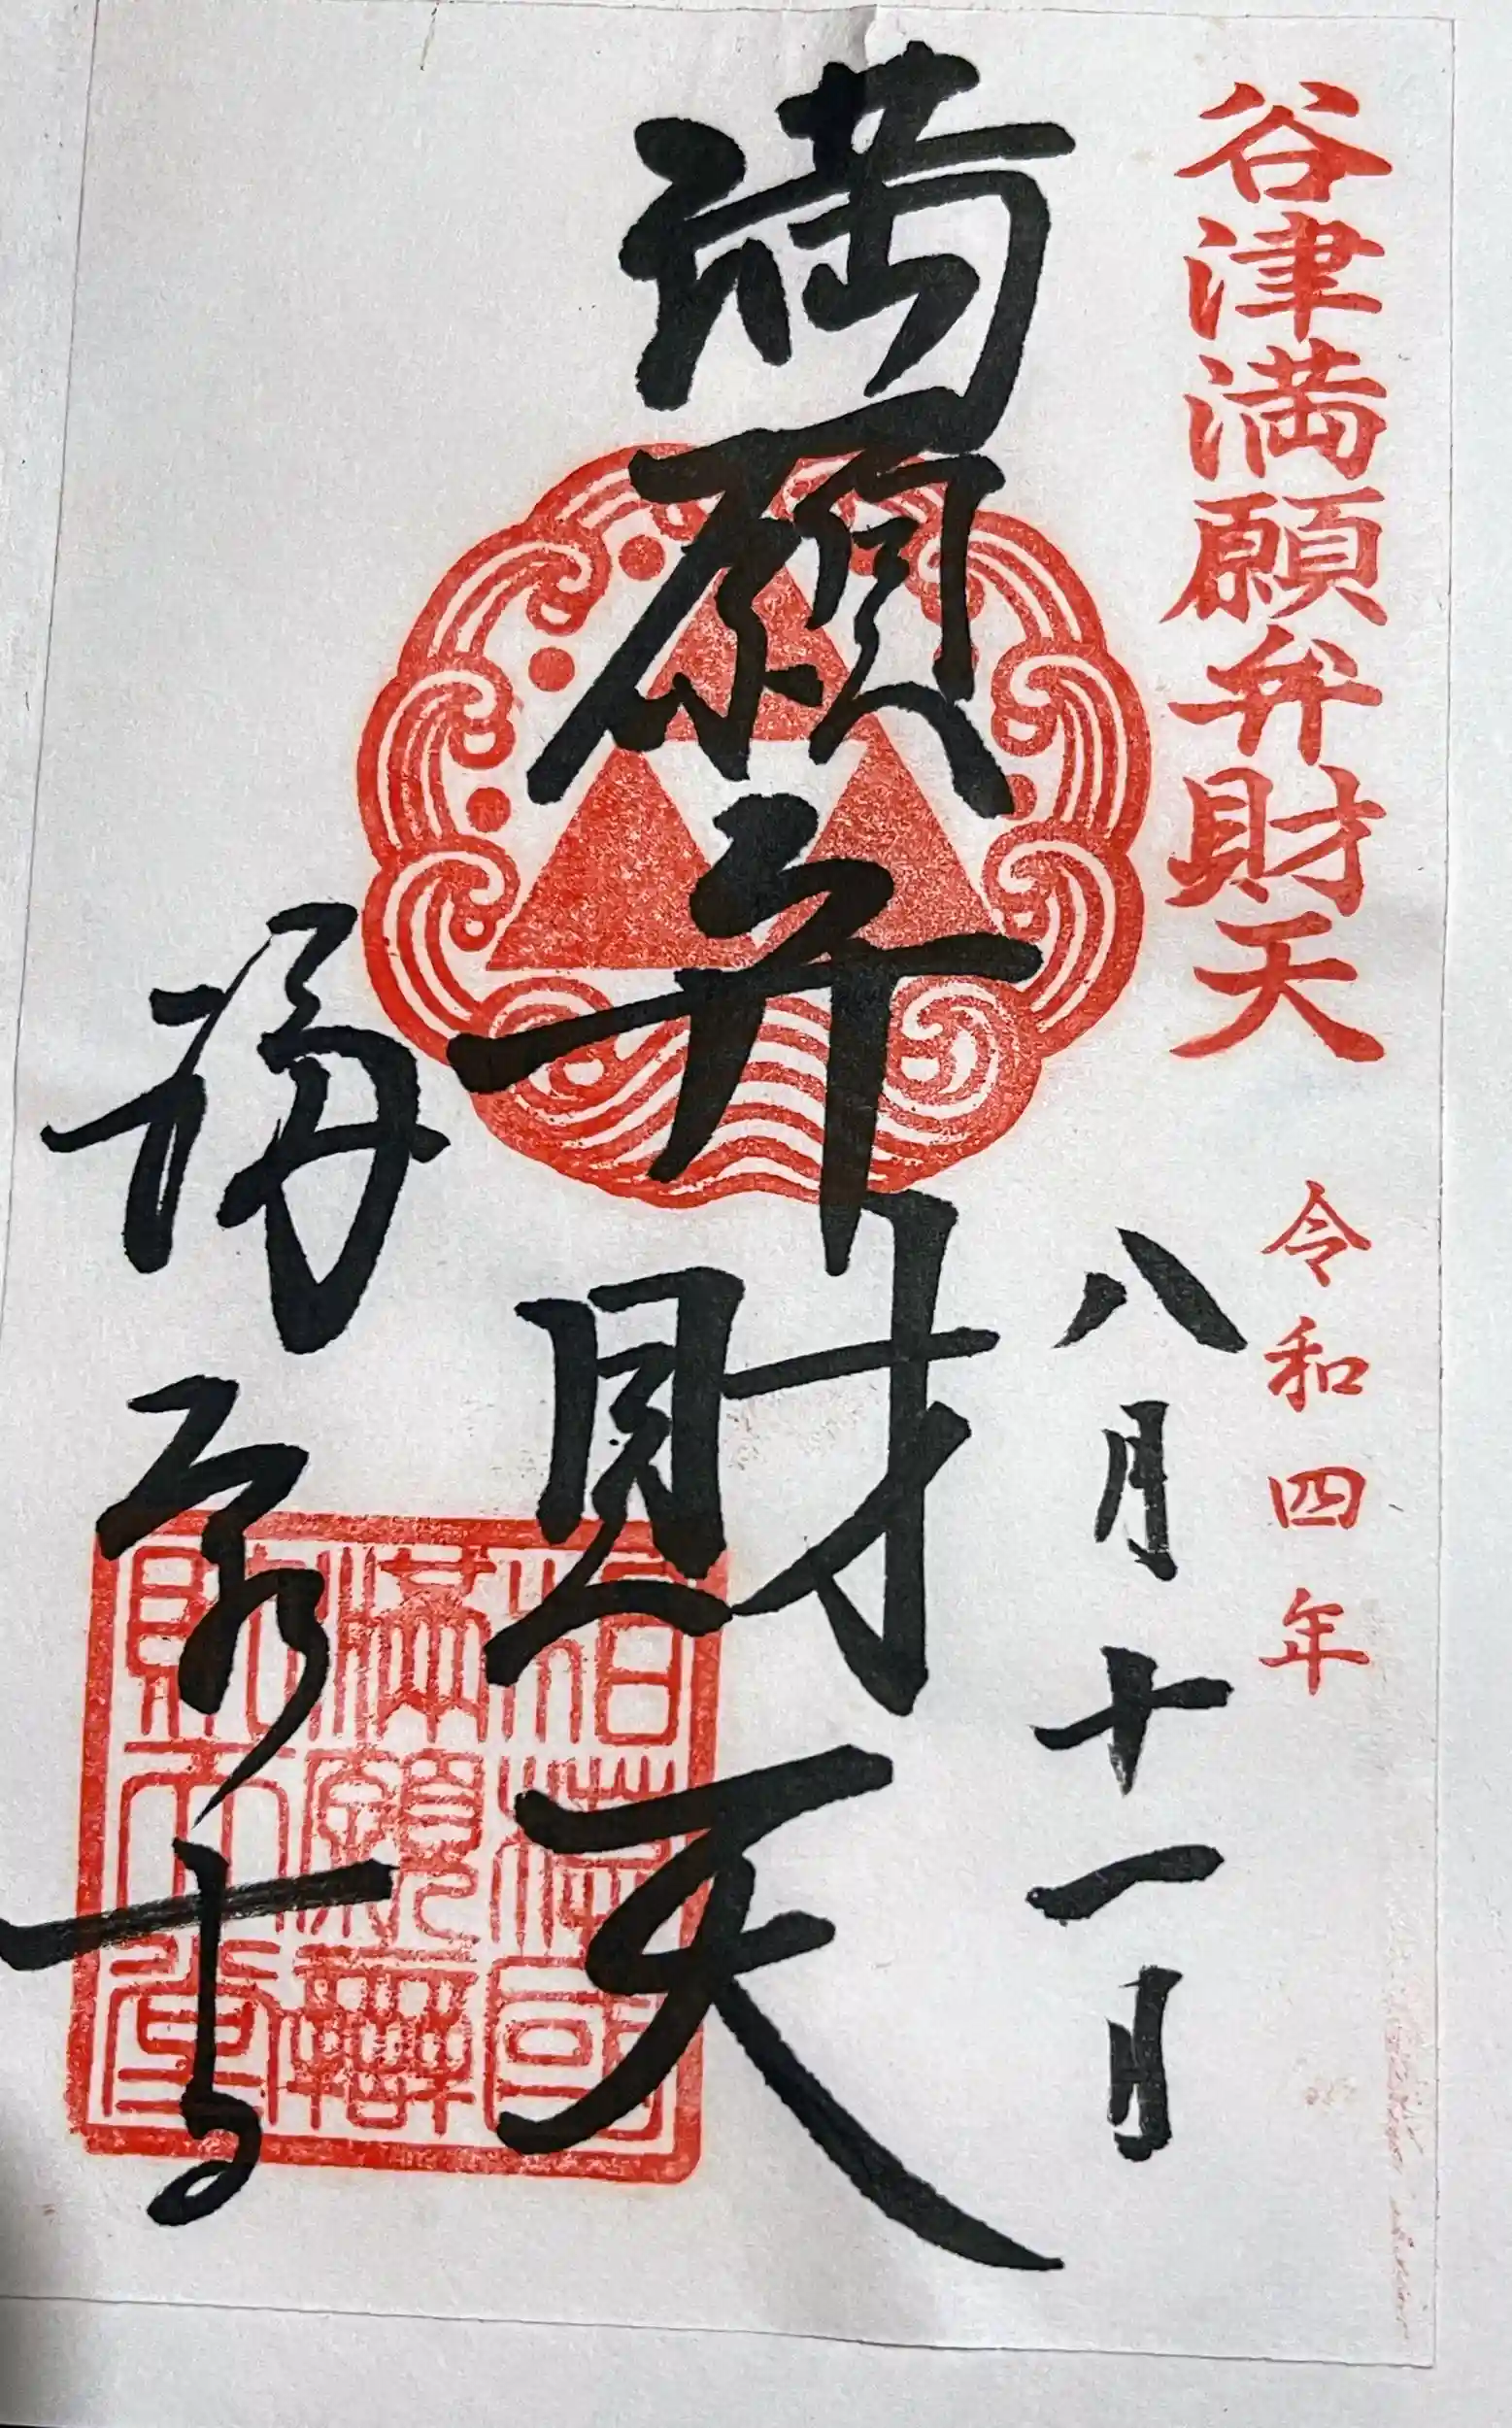 谷津満願弁財天
令和四年
八月十一日
満願弁財天
福泉寺
財天堂